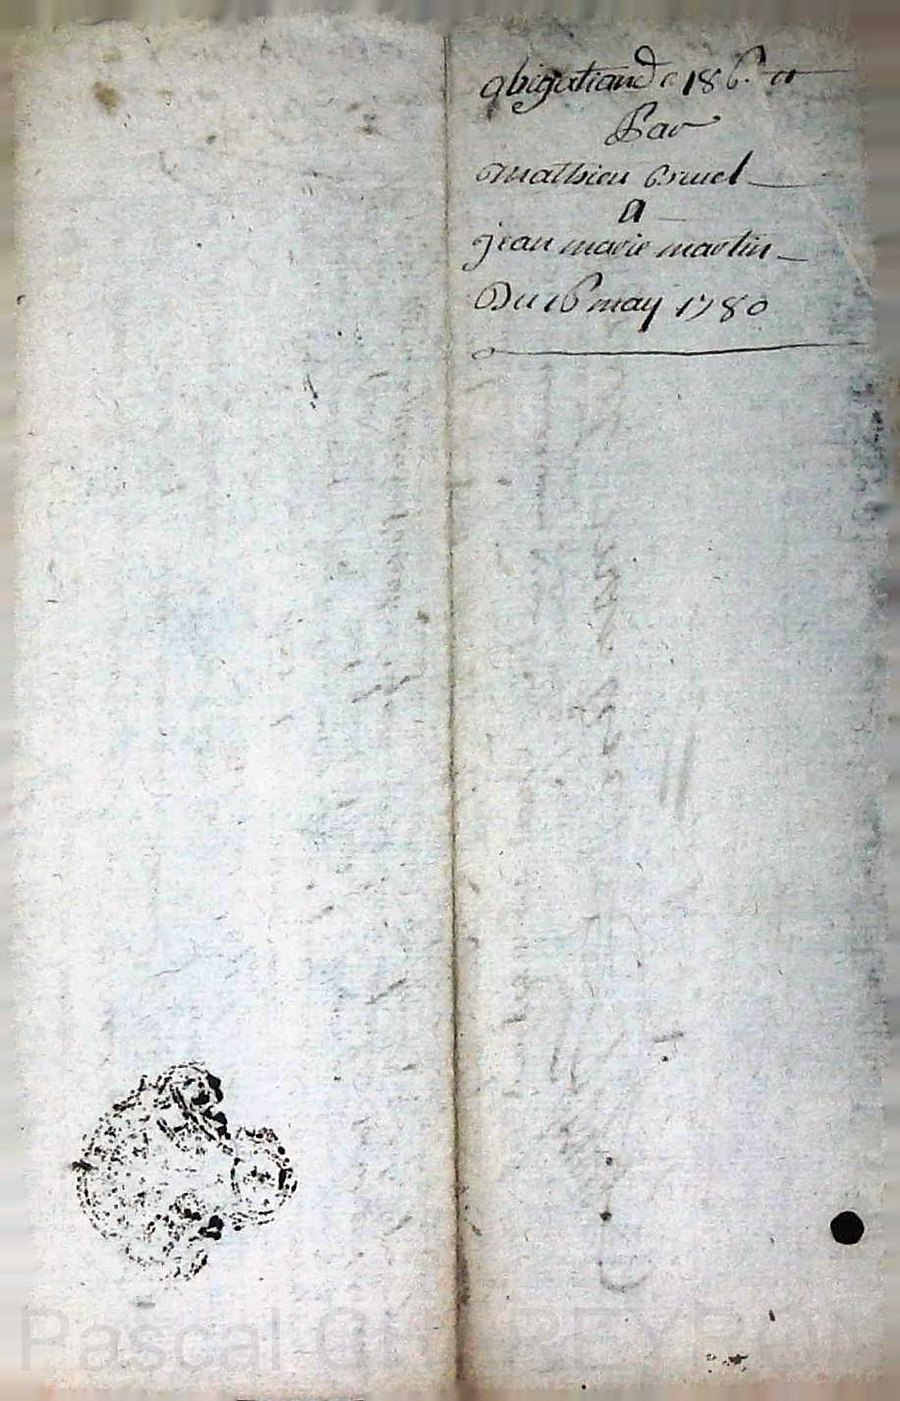 obigationd e 186ᵗᵗ
Par
mathieu bruel
A
jean marie martin
Du 16 may 1780
Pascal CH REYRON